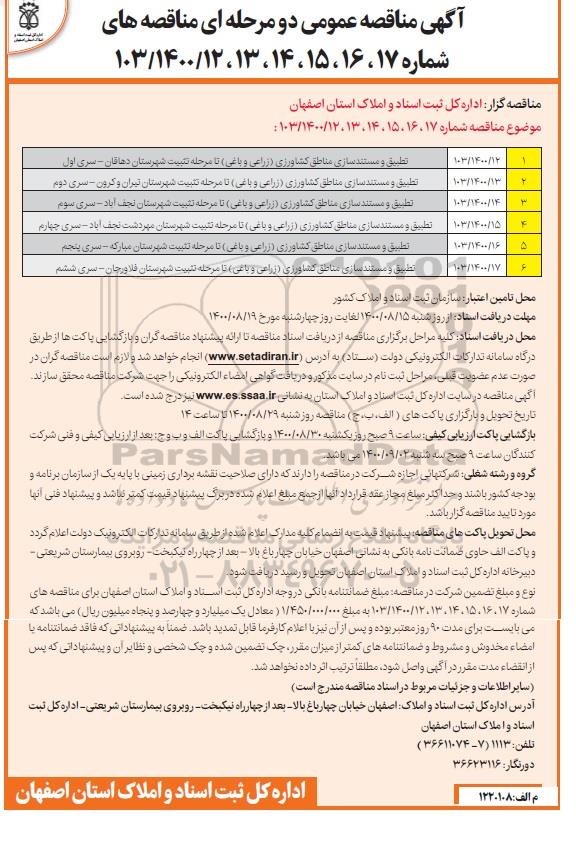 آگهی مناقصه عمومی دو مرحله ای مناقصه های
شماره ۱۷، ۱۶، ۱۵، ۱۴، ۱۳، ۱۰۳/۱۴۰۰/۱۲
اداره کل ثبت اسناد و املاک استان اصفهان
مناقصه گزار: اداره کل ثبت اسناد و املاک استان اصفهان
موضوع مناقصه شماره ۱۷، ۱۶، ۱۵، ۱۴، ۱۳، ۱۰۳/۱۴۰۰/۱۲:
۱ ۱۰۳/۱۴۰۰/۱۲ تطبیق و مستندسازی مناطق کشاورزی (زراعی و باغی) تا مرحله تثبیت شهرستان دهاقان – سری اول
۲ ۱۰۳/۱۴۰۰/۱۳ تطبیق و مستندسازی مناطق کشاورزی (زراعی و باغی) تا مرحله تثبیت شهرستان تیران و کرون – سری دوم
۳ ۱۰۳/۱۴۰۰/۱۴ تطبیق و مستندسازی مناطق کشاورزی (زراعی و باغی) تا مرحله تثبیت شهرستان نجف آباد – سری سوم
۴ ۱۰۳/۱۴۰۰/۱۵ تطبیق و مستندسازی مناطق کشاورزی (زراعی و باغی) تا مرحله تثبیت شهرستان مهردشت نجف آباد – سری چهارم
۵ ۱۰۳/۱۴۰۰/۱۶ تطبیق و مستندسازی مناطق کشاورزی (زراعی و باغی) تا مرحله تثبیت شهرستان مبارکه – سری پنجم
۶ ۱۰۳/۱۴۰۰/۱۷ تطبیق و مستندسازی مناطق کشاورزی (زراعی و باغی) تا مرحله تثبیت شهرستان فلاورجان – سری ششم
محل تامین اعتبار: سازمان ثبت اسناد و املاک کشور
مهلت دریافت اسناد: از روز شنبه ۱۴۰۰/۰۸/۱۵ لغایت روز چهارشنبه مورخ ۱۴۰۰/۰۸/۱۹
محل دریافت اسناد: کلیه مراحل برگزاری مناقصه از دریافت اسناد مناقصه تا ارائه پیشنهاد مناقصه گران و بازگشایی پاکت ها از طریق
درگاه سامانه تدارکات الکترونیکی دولت (ستاد) به آدرس (www.setadiran.ir) انجام خواهد شد و لازم است مناقصه گران در
صورت عدم عضویت قبلی، مراحل ثبت نام در سایت مذکور و دریافت گواهی امضاء الکترونیکی را جهت شرکت مناقصه محقق سازند.
آگهی مناقصه در سایت اداره کل ثبت اسناد و املاک استان به نشانی www.es.ssaa.ir نیز درج شده است.
تاریخ تحویل و بارگزاری پاکت های (الف، ب، ج) مناقصه روز شنبه ۱۴۰۰/۰۸/۲۹ تا ساعت ۱۴
بازگشایی پاکت ارزیابی کیفی: ساعت ۹ صبح روز یکشنبه ۱۴۰۰/۰۸/۳۰ و بازگشایی پاکت الف و ب و ج: بعد از ارزیابی کیفی و فنی شرکت
کنندگان ساعت ۹ صبح سه شنبه ۱۴۰۰/۰۹/۰۲ می باشد.
گروه و رشته شغلی: شرکتهائی اجازه شرکت در مناقصه را دارند که دارای صلاحیت نقشه برداری زمینی با پایه یک از سازمان برنامه و
بودجه کشور باشند و حداکثر مبلغ مجاز عقد قرارداد آنها از جمع مبلغ اعلام شده در برگ پیشنهاد قیمت کمتر نباشد و پیشنهاد فنی آنها
مورد تایید مناقصه گزار باشد.
محل تحویل پاکت های مناقصه: پیشنهاد قیمت به انضمام کلیه مدارک اعلام شده از طریق سامانه تدارکات الکترونیک دولت اعلام گردد
و پاکت الف حاوی ضمانت نامه بانکی به نشانی اصفهان خیابان چهارباغ بالا – بعد از چهار راه نیکبخت - روبروی بیمارستان شریعتی -
دبیرخانه اداره کل ثبت اسناد و املاک استان اصفهان تحویل و رسید دریافت شود.
نوع و مبلغ تضمین شرکت در مناقصه: مبلغ ضمانتنامه بانکی در وجه اداره کل ثبت اسناد و املاک استان اصفهان برای مناقصه های
شماره ۱۷، ۱۶، ۱۵، ۱۴، ۱۳، ۱۰۳/۱۴۰۰/۱۲ به مبلغ ۱/۴۵۰/۰۰۰/۰۰۰ (معادل یک میلیارد و چهارصد و پنجاه میلیون ریال) می باشد که
می بایست برای مدت ۹۰ روز معتبر بوده و پس از آن نیز با اعلام کارفرما قابل تمدید باشد. ضمناً به پیشنهاداتی که فاقد ضمانتنامه یا
امضاء مخدوش و مشروط و ضمانتنامه های کمتر از میزان مقرر، چک تضمین شده و چک شخصی و نظایر آن و پیشنهاداتی که پس
از انقضاء مدت مقرر در آگهی واصل شود، مطلقاً ترتیب اثر داده نخواهد شد.
(سایر اطلاعات و جزئیات مربوط در اسناد مناقصه مندرج است)
آدرس اداره کل ثبت اسناد و املاک: اصفهان خیابان چهارباغ بالا- بعد از چهارراه نیکبخت - روبروی بیمارستان شریعتی- اداره کل ثبت
اسناد و املاک استان اصفهان
تلفن: ۱۱۱۳ (۷-۳۶۶۱۱۰۷۴)
دورنگار: ۳۶۶۲۳۱۱۶
م الف: ۱۲۲۰۱۰۸
اداره کل ثبت اسناد و املاک استان اصفهان
ParsNamadData